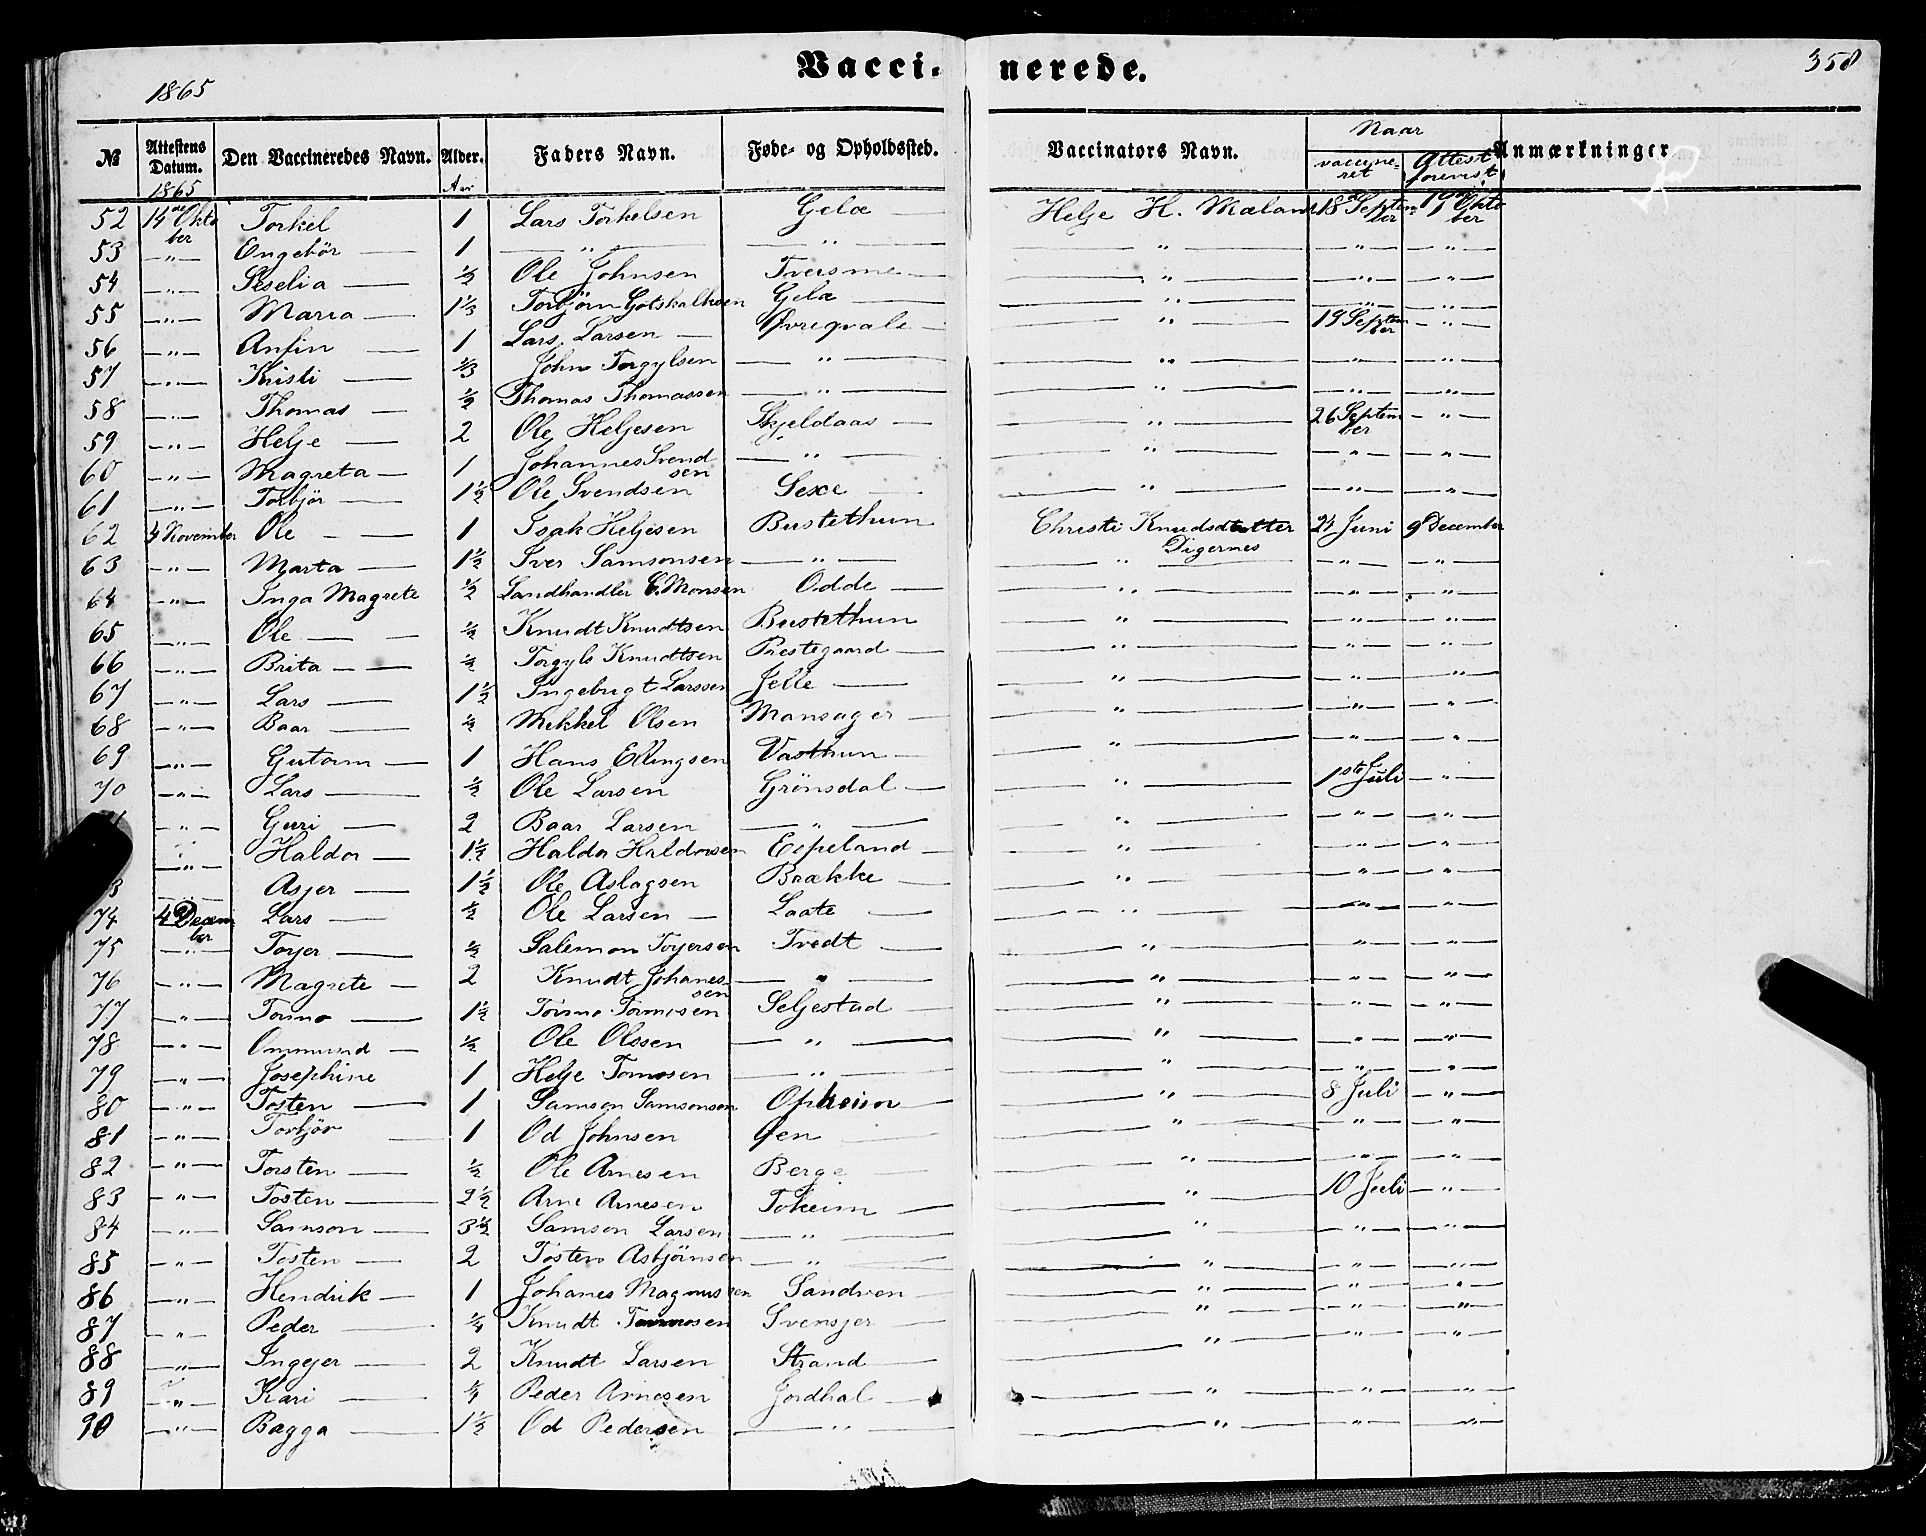 Vaccinerede.
1865
358
№ Attestens Datum. Den Vaccineredes Navn. Alder. Faders Navn. Føde- og Opholdssted. Vaccinators Navn. Naar vaccineret Attest forevist Anmærkninger
1865 Aar
52 14de Oktober Torkel 1 Lars Torkelsen Gelæ Helje H. Mæland 18 September 19de Oktober
53 —"— Engebör — 1 — " — — " — — " — —"— —"—
54 —"— Seselia — ½ Ole Johnsen Tveisme — — " — —"— —"—
55 —"— Maria — 1⅓ Torbjörn Gotskalksen Gelæ — — " — —"— —"—
56 —"— Anfin — 1 Lars Larsen — Øvreqvale — — " — 19 September —"—
57 —"— Kristi — ⅓ John Torgylsen — " — — " — —"— —"—
58 —"— Thomas — ½ Thomas Thomassen — " — — " — —"— —"—
59 —"— Helje — 2 Ole Heljesen Skjeldaas — — " — 26 September —"—
60 —"— Magreta — 1 Johannes Svendsen — " — — " — —"— —"—
61 —"— Torbjör — 1½ Ole Svendsen Sexe — — " — —"— —"—
62 4 November Ole — 1 Isak Heljesen Bustethun Christi Knudsdatter Digernes 24 Juni 9 December
63 —"— Marta — 1½ Iver Samsonsen — " — — " — —"— —"—
64 —"— Inga Magrete ½ Landhandler C. Monsen Odde — — " — —"— —"—
65 —"— Ole — ½ Knudt Knudtsen Bustethun — " — —"— —"—
66 —"— Brita — ½ Torgyls Knudtsen Prestegaard — — " — —"— —"—
67 —"— Lars — 1½ Ingebrigt Larssen Jelle — — " — —"— —"—
68 —"— Baar — ½ Mikkel Olsen Mansager — — " — —"— —"—
69 —"— Gutorm — 1 Hans Ellingsen Vasthun — — " — —"— —"—
70 —"— Lars — ½ Ole Larsen Grönsdal — — " — 1ste Juli —"—
—"— Guri — 2 Baar Larsen — " — — " — —"— —"—
—"— Haldor — 1½ Haldor Haldorsen Espeland — — " — —"— —"—
3 —"— Asjer — 1½ Ole Aslagsen Brække — — " — —"— —"—
74 4 December Lars — ½ Ole Larsen — Laate — — " — —"— —"—
75 —"— Torjer — ½ Salemon Torjersen Tvedt — — " — —"— —"—
76 —"— Magrete — 2 Knudt Johanessen — " — — " — —"— —"—
77 —"— Tormo — 1½ Tormo Tormosen Seljestad — — " — —"— —"—
78 —"— Ommund — ½ Ole Olssen — " — — " — —"— —"—
79 —"— Josephine 1 Helje Tormosen — " — — " — —"— —"—
80 —"— Tosten — 1 Samson Samsonsen Opheim — — " — 8 Juli —"—
81 —"— Torbjör — 1 Od Johnsen — " — —"— —"—
82 —"— Torsten — ½ Ole Arnesen Berge — " — —"— —"—
83 —"— Tosten — 2½ Arne Arnesen Tokeim — — " — 10 Juli —"—
84 —"— Samson — 3½ Samson Larsen — " — — " — —"— —"—
85 —"— Tosten — 2 Tosten Asbjörnsen — " — — " — —"— —"—
86 —"— Hendrik — 1 Johanes Magnussen Sandven — — " — —"— —"—
87 —"— Peder — ¼ Knudt Tormosen Svensjer — — " — —"— —"—
88 —"— Ingejer — 2 Knudt Larsen Strand — — " — —"— —"—
89 —"— Kari — ¼ Peder Arnesen Jordhal — — " — —"— —"—
90 —"— Bagga — 1½ Od Pedersen — " — — " — —"— —"—